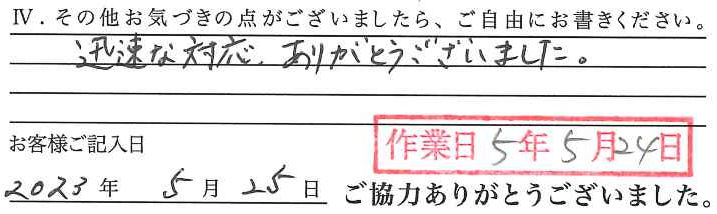 Ⅳ．その他お気づきの点がございましたら、ご自由にお書きください。
迅速な対応、ありがとうございました。
お客様ご記入日
作業日 5年 5月24日
2023 年 5 月 25 日 ご協力ありがとうございました。